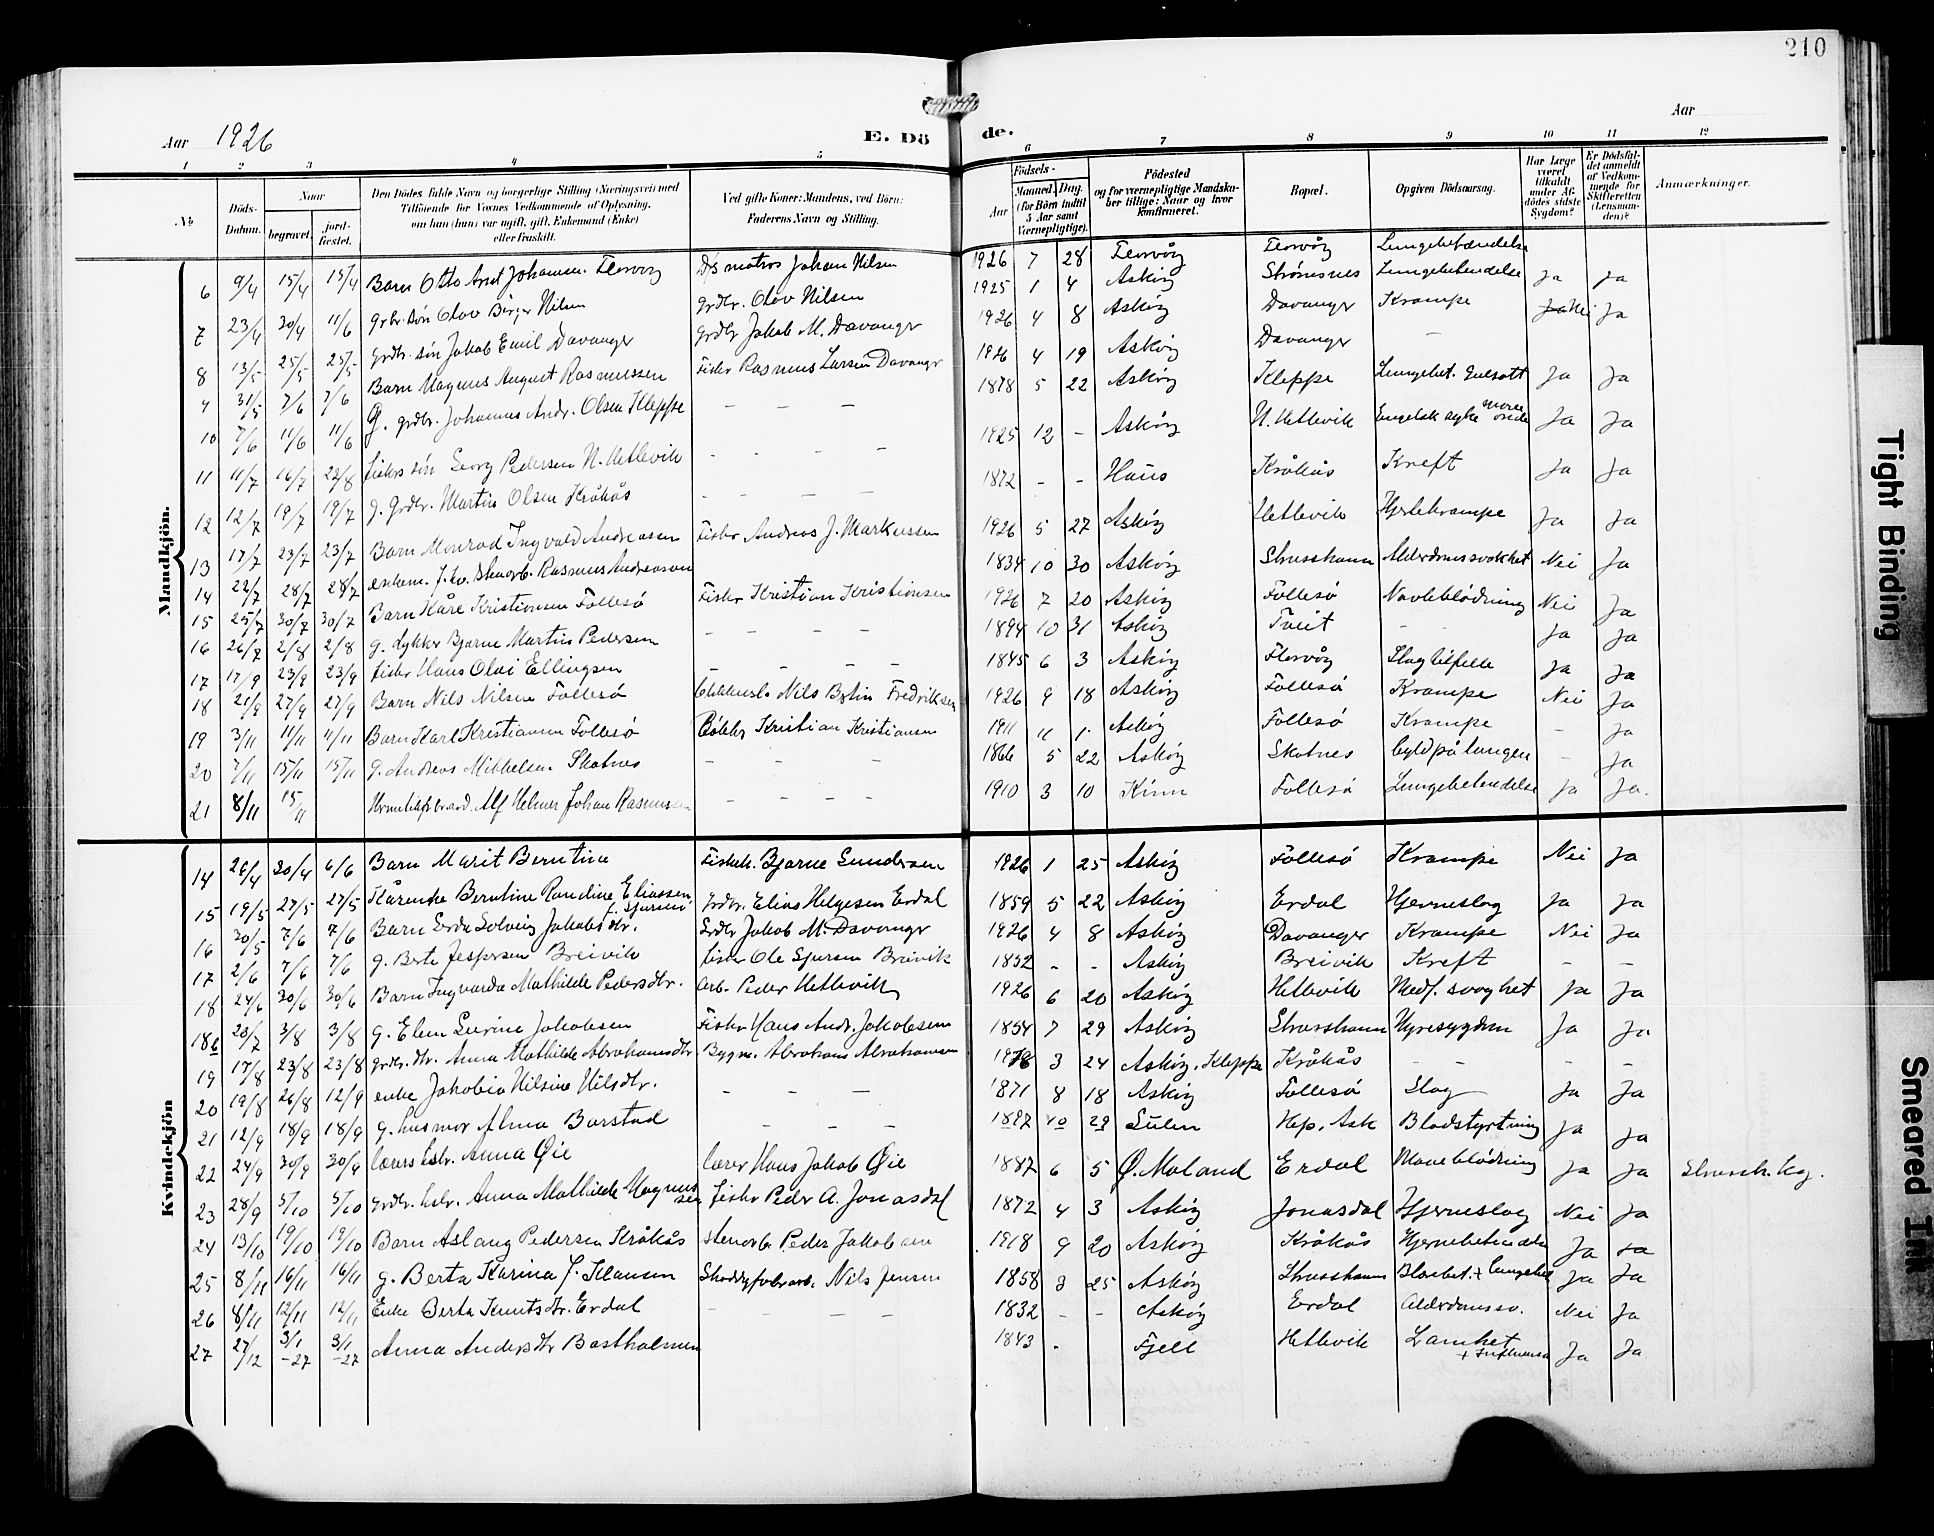 210
Aar 1926
E. Dö de.
Aar
1 2 3 4 5 6 7 8 9 10 11 12
No
Döds-Datum.
Naar
begravet.
jord-fæstet.
Den Dödes fulde Navn og borgerlige Stilling (Næringsvei) med Tilföiende for Voxnes Vedkommende af Oplysning, om han (hun) var ugift, gift, Enkemand (Enke) eller fraskilt.
Ved gifte Koner: Mandens, ved Börn: Faderens Navn og Stilling.
Födsels-
Aar
Maaned. Dag. (for Börn indtil 5 Aar samt Værnepligtige).
Födested og for værnepligtige Mandskaber tillige: Naar og hvor konfirmeret.
Bopæl.
Opgiven Dödsaarsag.
Har Læge været tilkaldt under Afdödes sidste Sygdom?
Er Dödsfaldet anmeldt af Vedkommende for Skifteretten (Lensmanden)?
Anmærkninger.
Mandkjön.
6 9/4 15/4 15/4 Barn Otto Arnt Johansen Florvåg Ds matros Johan Nilsen 1926 7 28 Florvåg Florvåg Lungebetændelse
7 23/4 30/4 11/6 grbr. søn Olav Birger Nilsen grdbr. Olov Nilsen 1925 1 4 Askøy Strømsnes Lungebetendelse Ja Ja
8 13/5 25/5 25/5 grdbr. søn Jakob Emil Davanger grdbr Jakob M. Davanger 1926 4 8 Askøy Davanger Krampe Nei Ja
9 31/5 7/6 7/6 Barn Magnus August Rasmussen Fisker Rasmus Larsen Davanger 1926 4 19 Askøy Davanger –
10 7/6 11/6 11/6 G. grdbr. Johannes Andr. Olsen Kleppe – – – 1878 5 22 Askøy Kleppe Lungebet. Gulsott Ja Ja
11 11/7 16/7 22/8 fiskers søn Georg Pedersen N. Hetlevik – – – 1925 12 – Askøy N. Hetlevik Engelsk syke Ja Ja
12 12/7 19/7 19/7 g. Grdbr. Martin Olsen Kråkås – – – – 1872 – – Haus Kråkås Kreft Ja Ja
13 17/7 23/7 23/7 Barn Monrad Ingvald Andreassen Fisker Andreas J. Markussen 1926 5 27 Askøy Hetlevik Hjertekrampe Ja Ja
14 22/7 28/7 28/7 enkem. f. hv. stenarb. Rasmus Andreassen 1834 10 30 Askøy Strusshamn Alderdomssvakhet Nei Ja
15 25/7 30/7 30/7 Barn Kåre Kristiansen Follesø Fisker Kristian Kristiansen 1926 7 20 Askøy Follesø Navleblødning Nei Ja
16 26/7 2/8 2/8 g. dykker Bjarne Martin Pedersen – – – – 1894 10 31 Askøy Tveit – – Ja Ja
17 17/9 23/9 23/9 fisker Hans Olai Ellingsen – – – – 1845 6 3 Askøy Florvåg Slagtilfelle Ja Ja
18 21/9 27/9 27/9 Barn Nils Nilsen Follesø Nils Botin Fredriksen 1926 9 18 Askøy Follesø Krampe Nei Ja
19 3/11 11/11 11/11 Barn Karl Kristiansen Follesø Bøkker Kristian Kristiansen 1911 11 1 Askøy Follesø Krampe – Ja
20 7/11 15/11 15/11 g. Andreas Mikkelsen Skatnes – – – 1866 5 22 Askøy Skatnes byld på lungen – Ja
21 8/11 15/11 Alf Helmer Johan Rasmussen – – – – 1910 3 10 Kinn Follesø Lungebetendelse Ja Ja.
Kvindekjön
14 26/4 20/4 6/6 Barn Marit Berntine Fiskeh. Bjarne Gundersen 1926 1 25 Askøy Follesø Krampe Nei Ja
15 19/5 27/5 27/5 Kårenke Berntine Randine Eliassen grdbr. Elias Helgesen Erdal 1859 5 22 Askøy Erdal Hjerneslag Ja Ja
16 30/5 7/6 7/6 Barn Gerda Solveig Jakobsdtr. Grdbr Jakob M. Davanger 1926 4 8 Askøy Davanger Krampe Nei Ja
17 2/6 7/6 7/6 g. Berte Jespersen Breivik fisker Ole Sjursen Breivik 1852 – – Askøy Breivik Kreft – –
18 24/6 30/6 30/6 Barn Ingvarda Mathilde Pedersdtr. Arb. Peder Hetlevik 1926 6 20 Askøy Hetlevik Medf. svaghet Ja Ja
18b 28/7 3/8 3/8 g. Elen Serine Jakobsen Fisker Hans Andr. Jakobsen 1854 7 29 Askøy Strusshamn Nyresygdom Ja Ja
19 17/8 23/8 23/8 grdbr. dtr. Anna Mathilde Abrahamsdtr Bygm. Abraham Abrahamsen 3 24 Askøy, Kleppe Kråkås – – – –
20 19/8 26/8 12/9 enke Jakobia Nilsine Nilsdtr. – – – 1871 8 18 Askøy Follesø Slag Ja Ja
21 12/9 18/9 18/9 g. husmor Alma Barstad – – – 1897 10 29 Sulen Hop, Ask Blodstyrtning Ja Ja
22 24/9 30/9 30/9 lærers hstr. Anna Øie lærer Hans Jakob Øie 1887 6 5 Ø. Moland Erdal Maveblødning Ja Ja Strussh. kg.
23 28/9 5/10 5/10 grdbr. hstr. Anna Mathilde Magnussen fisker Peder A. Jonasdal 1872 4 3 Askøy Jonasdal Hjerneslag Nei Ja
24 13/10 19/10 19/10 Barn Aslaug Pedersen Kråkås stenarb. Peder Jakobsen 1918 9 20 Askøy Kråkås Hjernebetendelse Ja Ja
25 8/11 16/11 16/11 g. Berta Karina f. Klausen Shoddyfabr.arb. Nils Jensen 1858 3 25 Askøy Strusshamn Blærebet. + lungebet. Ja Ja
26 8/11 12/11 12/11 Enke Berta Knutsdtr. Erdal – – – – 1832 – – Askøy Erdal Alderdomssv. Nei Ja
27 27/12 3/1 -27 3/1 -27 Anna Andersdtr Bastholmen 1843 . Fjell Hetlevik Lamhet + Influensa Ja Ja
Tight Binding
Smeared INK